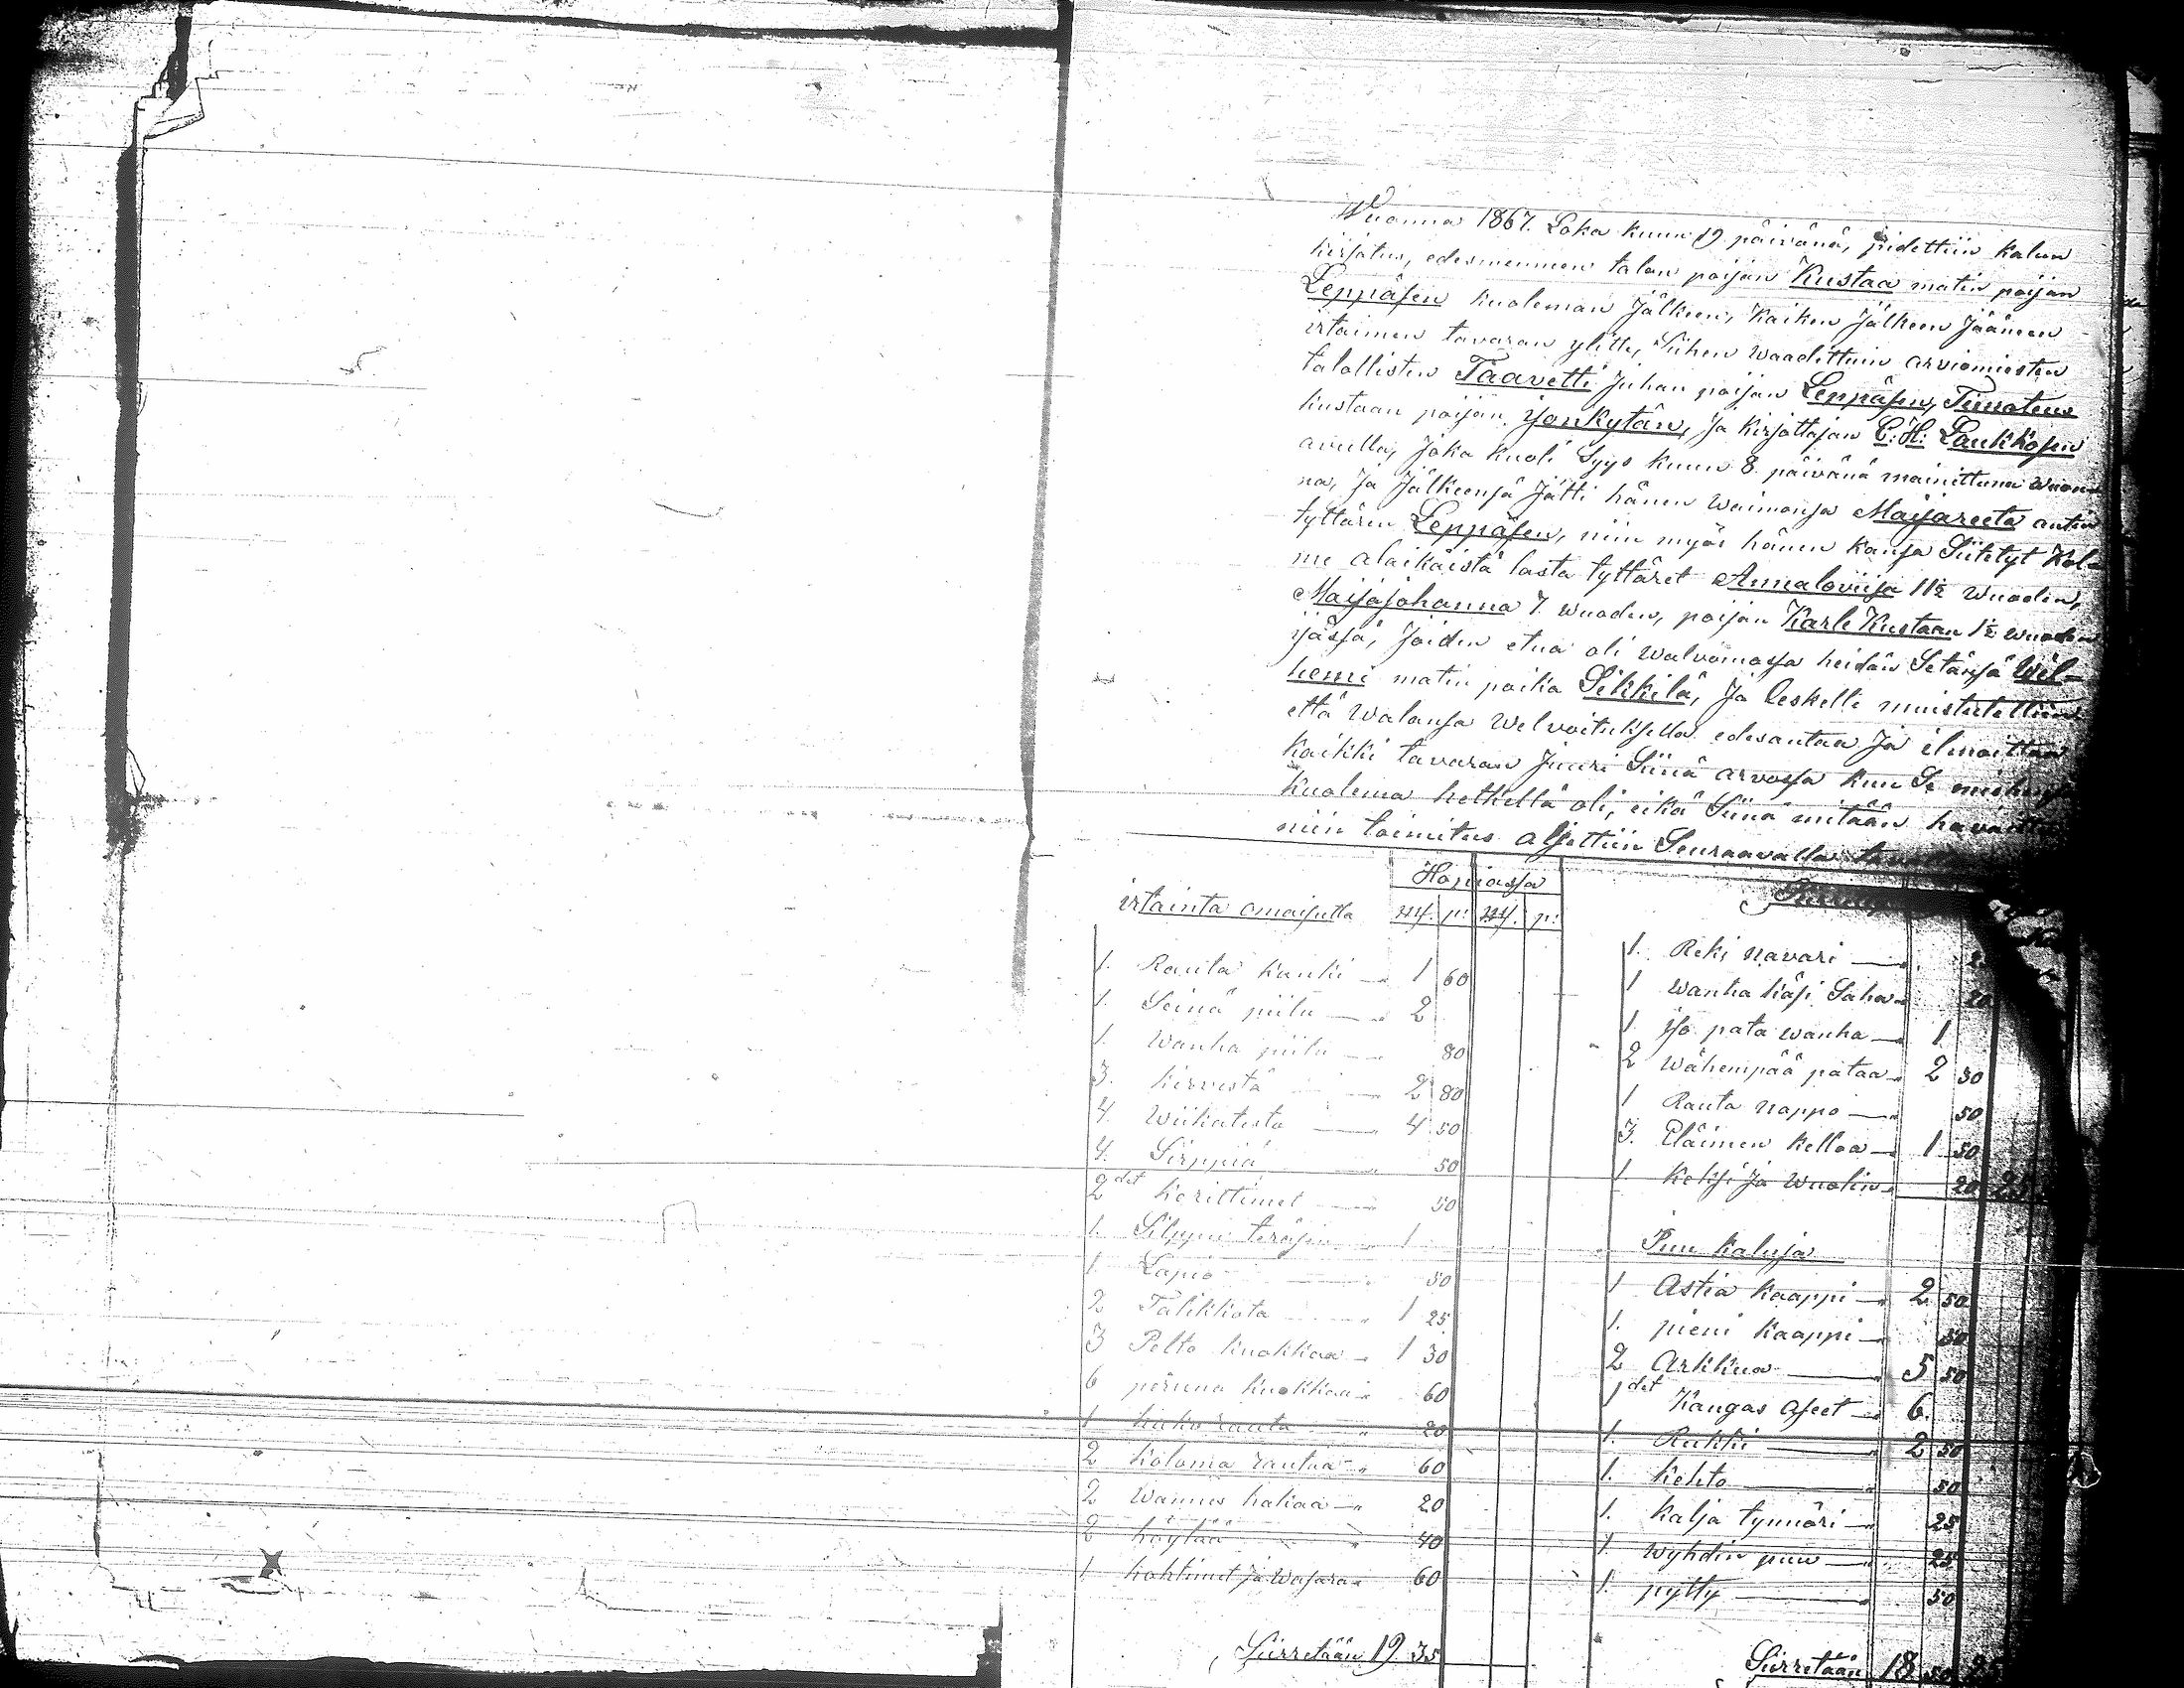 Wuonna 1867. Loka kuun 19 päivänä, pidettiin kalun
kirjotus, edesmennen talon poijan Kustaa matin poijan
Leppäsen kuoleman jälkeen, kaiken jälkeen jääneen
irtaimen tavaran ylitte, Siihen waadittuin arviomiesten
talollisten Taavetti Juhan poijan Leppäsen, Timoteus
kustaan poijan yönkytän, ja kirjottajan C: H: Laukkosen
avulla, joka kuoli Syys kuun 8 päivänä mainittuna wuon-
na, ja jälkeensä jätti hänen waimonsa Maijareeta antin
tyttären Leppäsen, niin myös hänen kansa Siitetyt kol-
me alaikäistä lasta tyttäret Annaloviisa 11½ wuoden,
Maijajohanna 7. wuoden, poijan Karle Kustaan 1½ wuoden
ijässä, joiden etua oli walvomassa heidän Setänsä Wil-
hemi matin poika Sikkilä, ja leskelle muistutettiin
että walansa welvoituksella edesantaa ja ilmoittaa
kaikki tavaran juuri Siinä arvossa kun Se miehensä
kuolema hetkellä oli, eikä Siinä mitään
niin toimitus aljettiin Seuraavalla tavalla
Hopiassa
irtainta omaisutta M. p: M. p:
1. Rauta kanki 1 60
1. Seinä piilu 2
1. Wanha piilu 80
3. kirvestä 2 80
4. Wiikatesta 4 50
4. Sirppiä 50
2 det kerittimet 50
1. Silppu teräsin 1
1 Lapio 50
2 Talikkota 1 25
3 Pelto kuokkaa 1 30
6 peruna kuokkaa 60
1 rauta 20
2 koloma rautaa 60
2 Wannes hakaa 20
2 höylää 40
1 hohtimet ja wasara 60
Siirretään 19 35
1. Reki navari
1 wanha käsi Saha 20
1 iso pata wanha 1
2 wähempää pataa 2 50
1 Rauta nappo 50
3. Eläimen kelloa 1 50
1. keksi ja wuolin 20
Puu kaluja
1 Astia kaappi 2 50
1. pieni kaappi 50
2 Arkkua 5 50
1 det Kangas aseet 6.
1. Rukki 2 50
1. kehto 50
1. kalja tynnöri 25
1. wyhdin puu 25
1. pytty 50
Siirretään 18 50